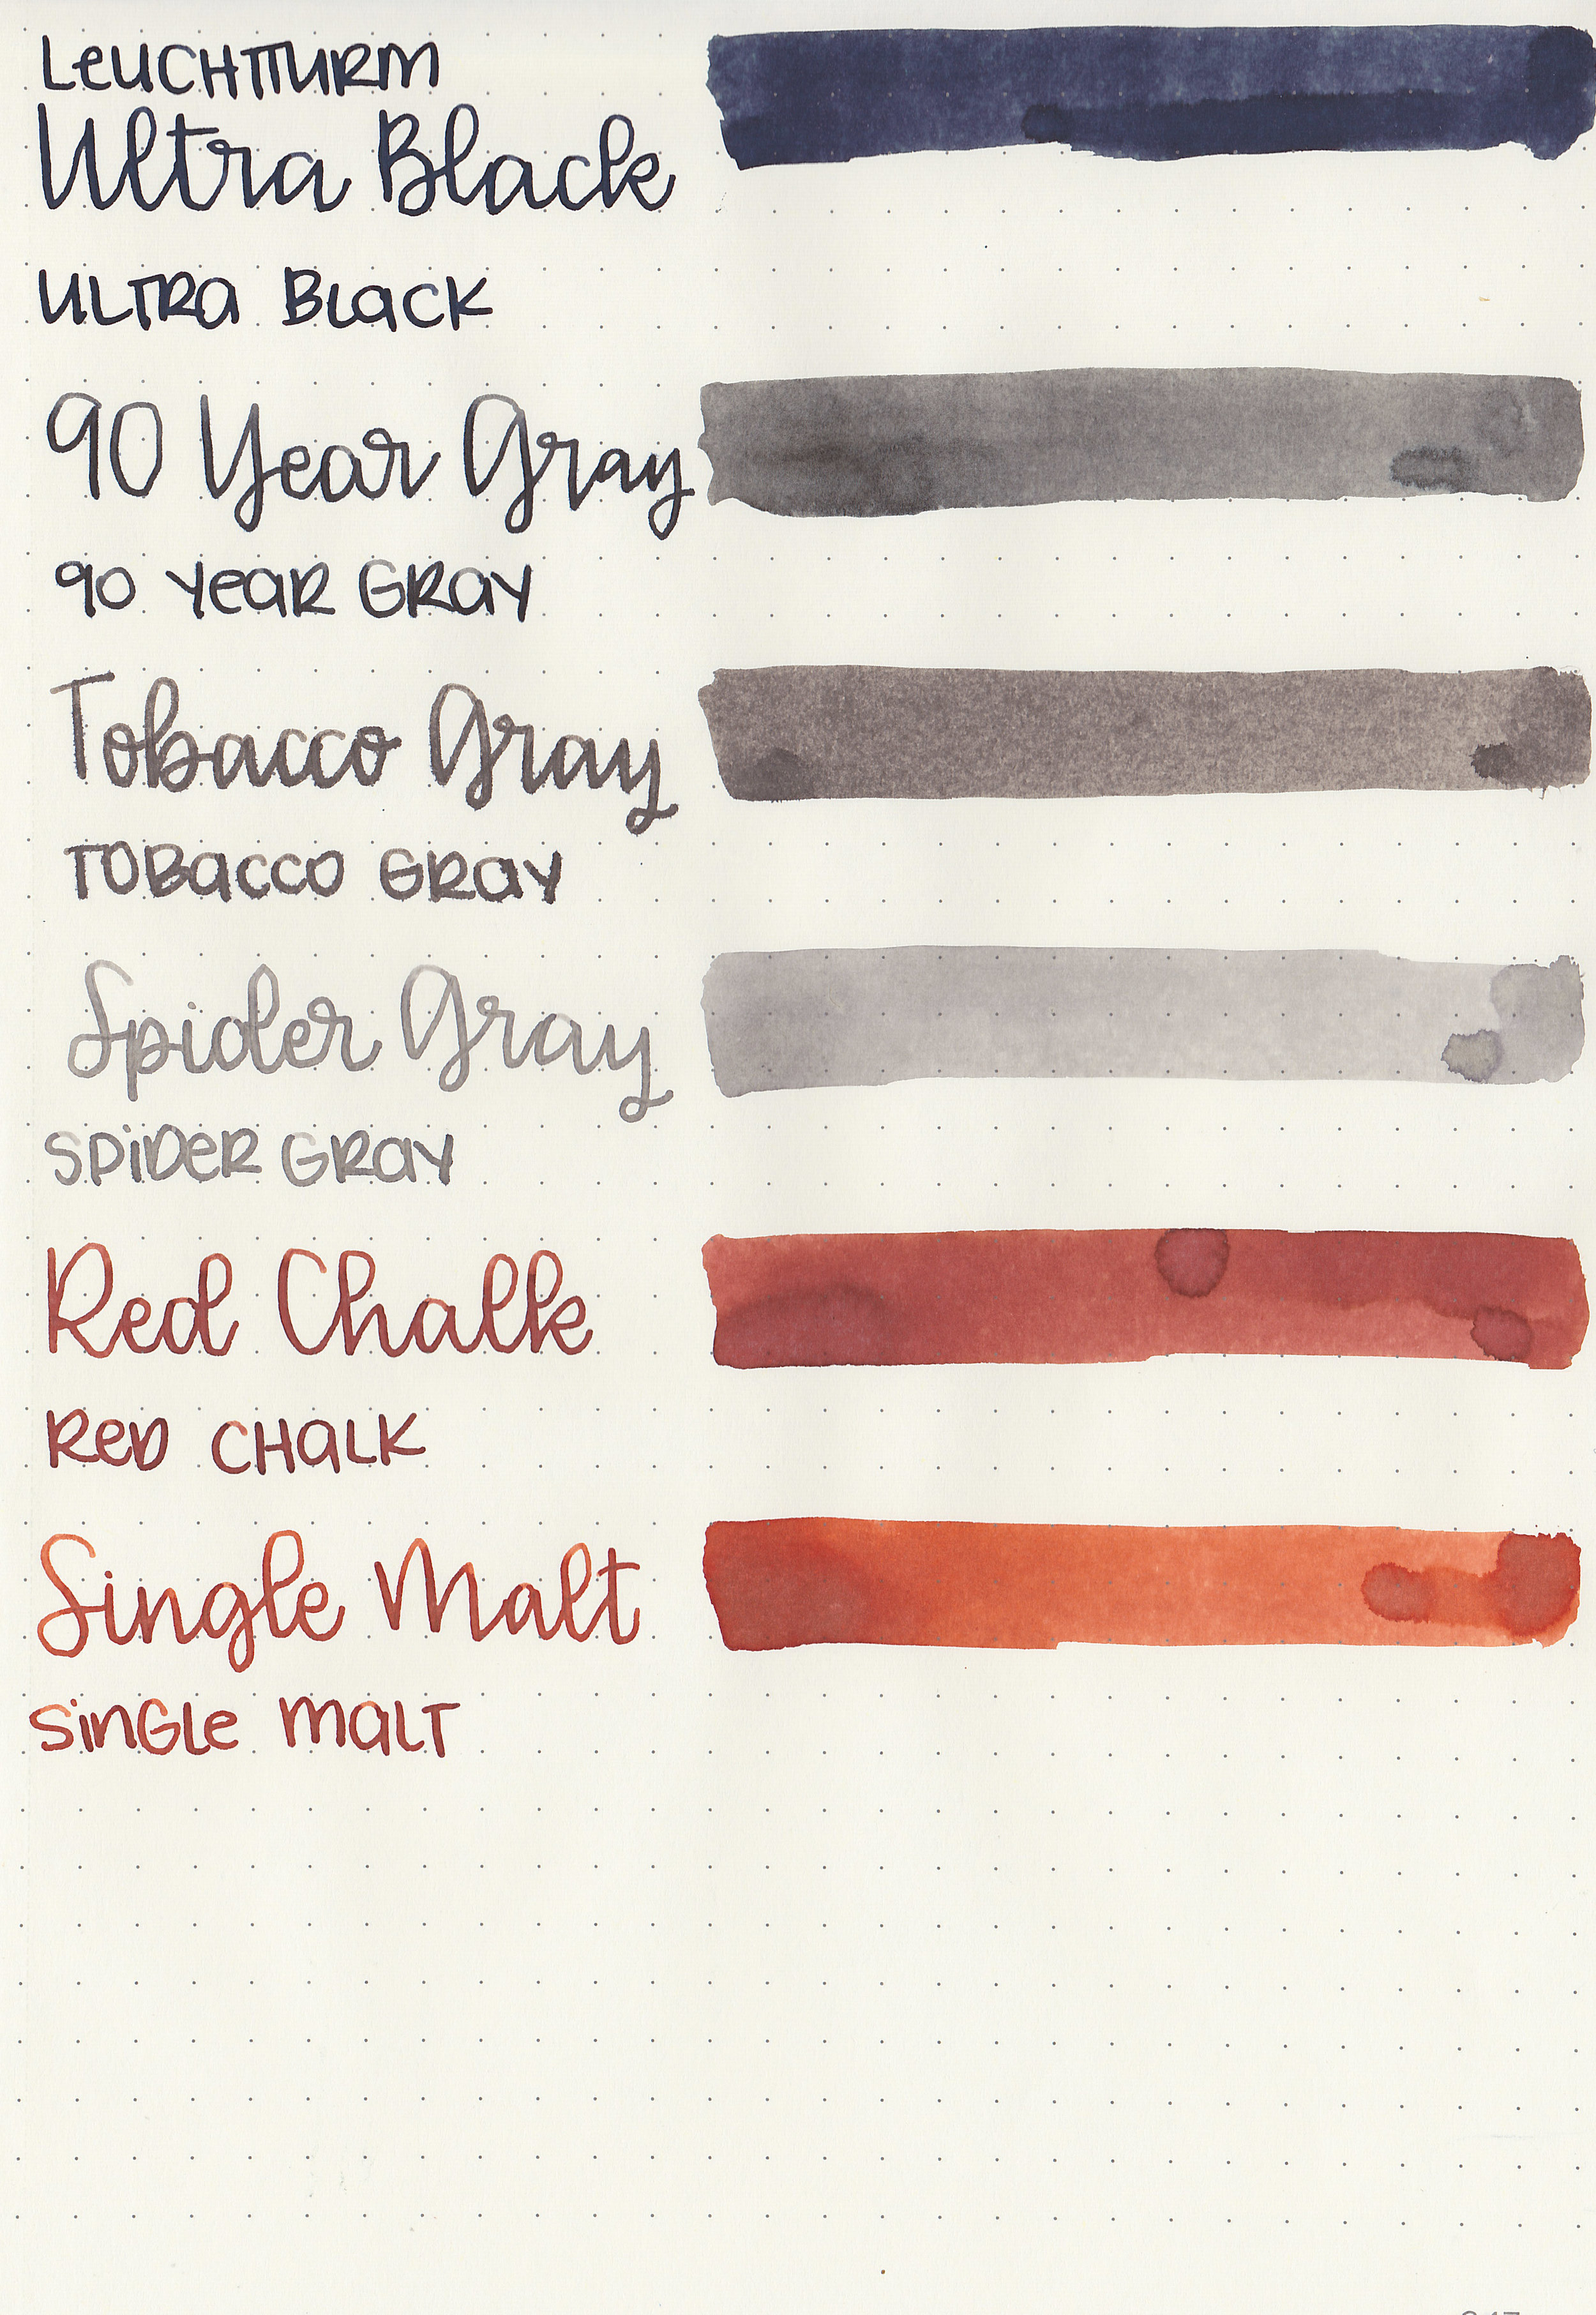 LEUCHTTURM
Ultra Black
ULTRA BLACK
90 Year Gray
90 YEAR GRAY
Tobacco Gray
TOBACCO GRAY
Spider Gray
SPIDER GRAY
Red Chalk
RED CHALK
Single Malt
SINGLE MALT